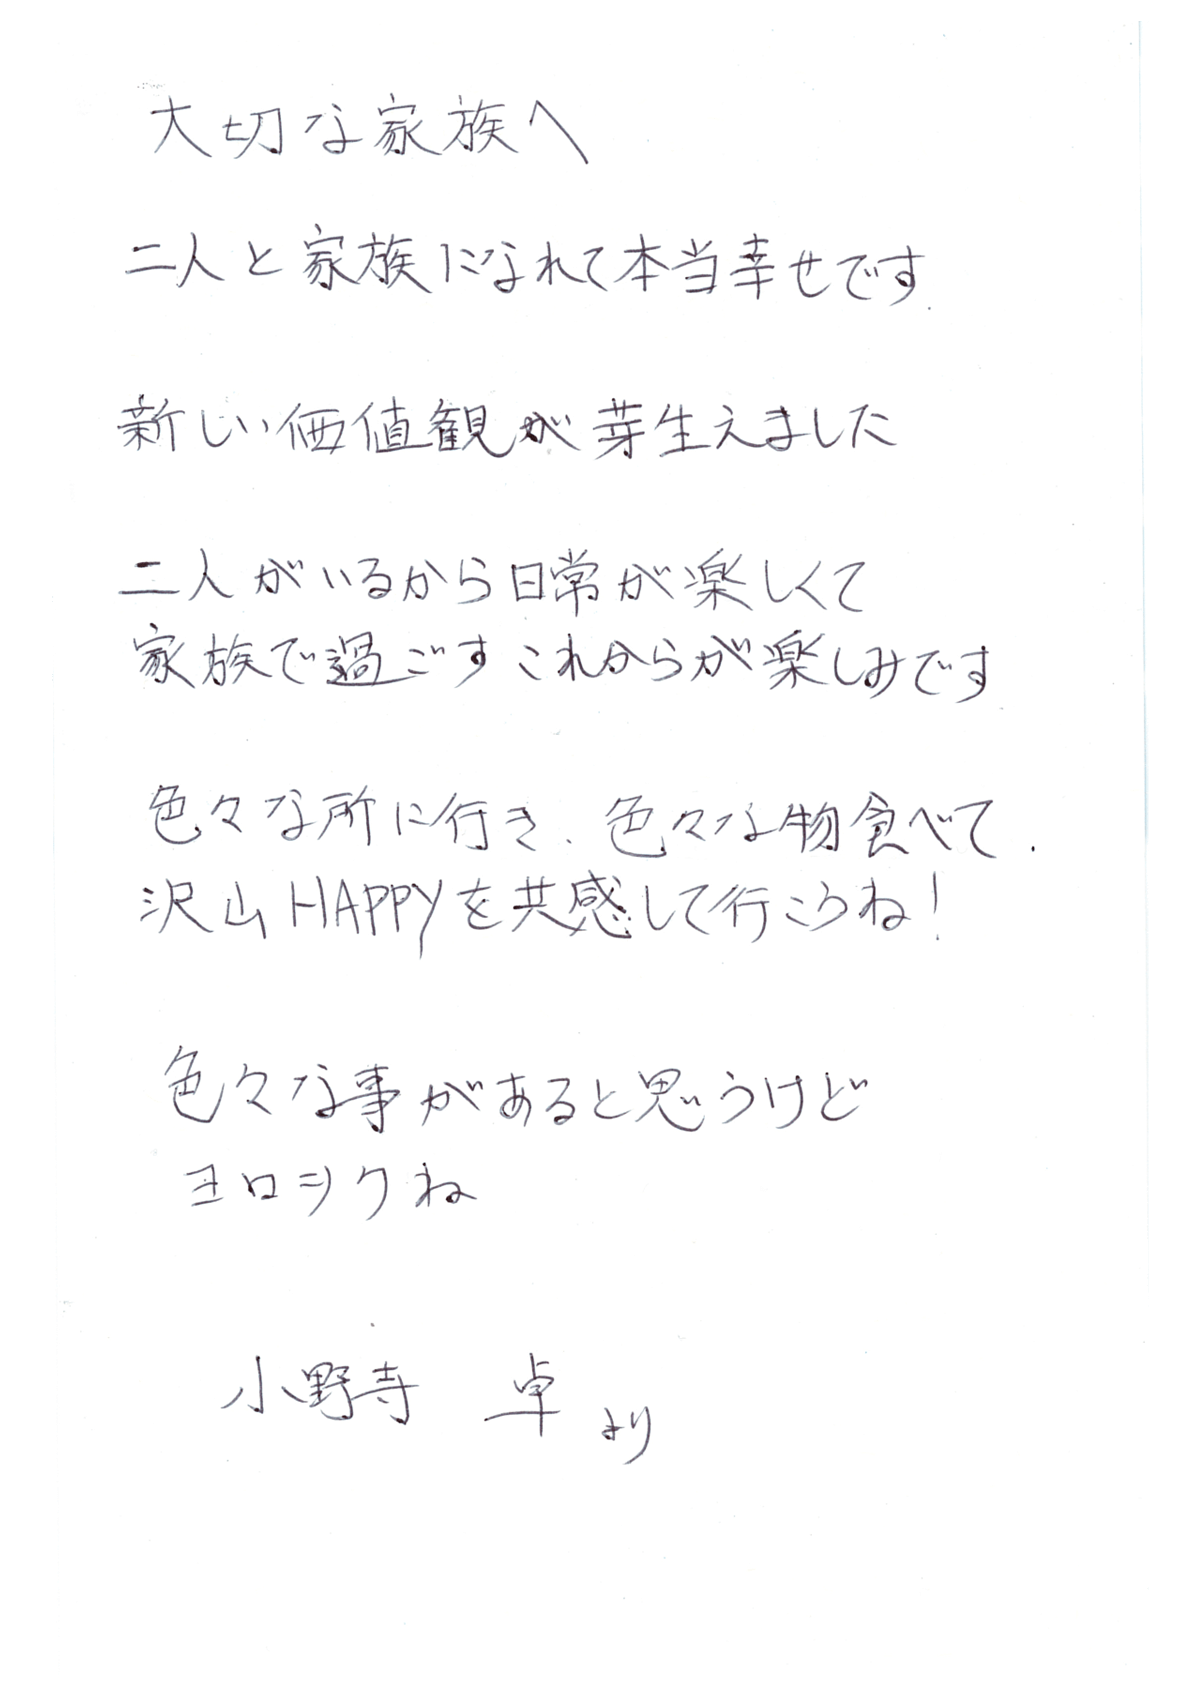 大切な家族へ
二人と家族になれて本当幸せです
新しい価値観が芽生えました
二人がいるから日常が楽しくて
家族で過ごすこれからが楽しみです
色々な所に行き、色々な物食べて、
沢山HAPPYを共感して行こうね!
色々な事があると思うけど
ヨロシクね
小野寺 卓より